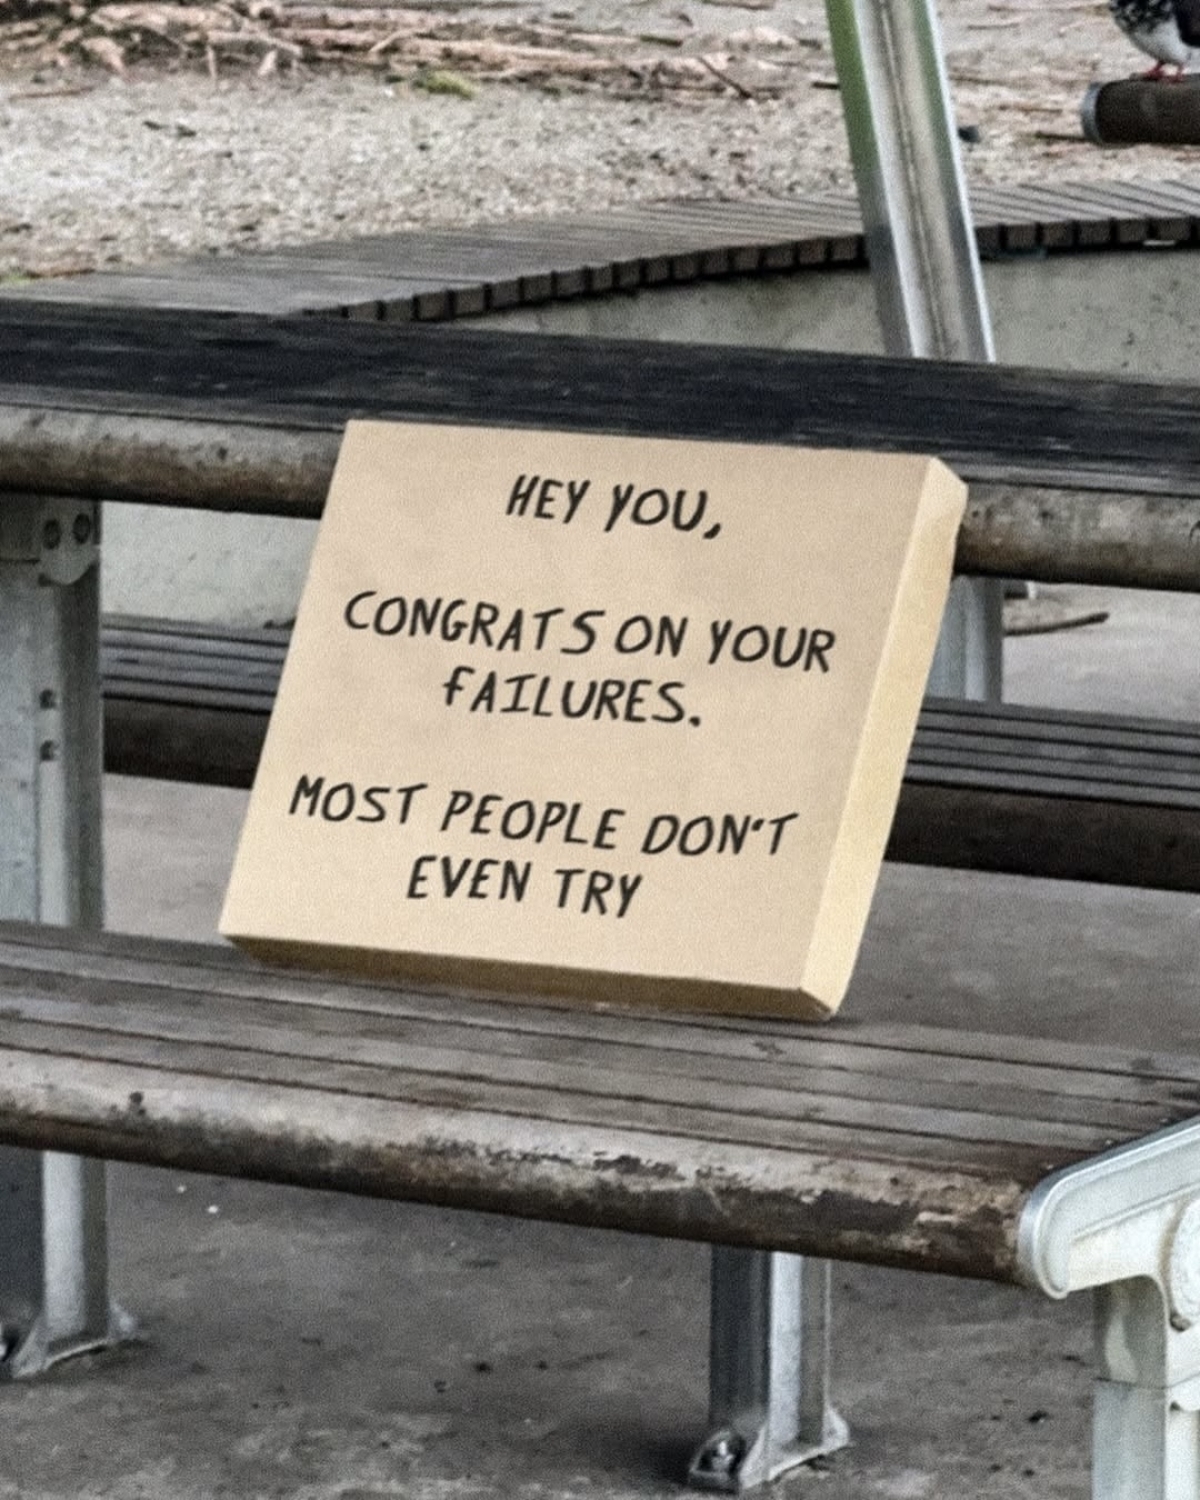 HEY YOU,
CONGRATS ON YOUR
FAILURES.
MOST PEOPLE DON'T
EVEN TRY